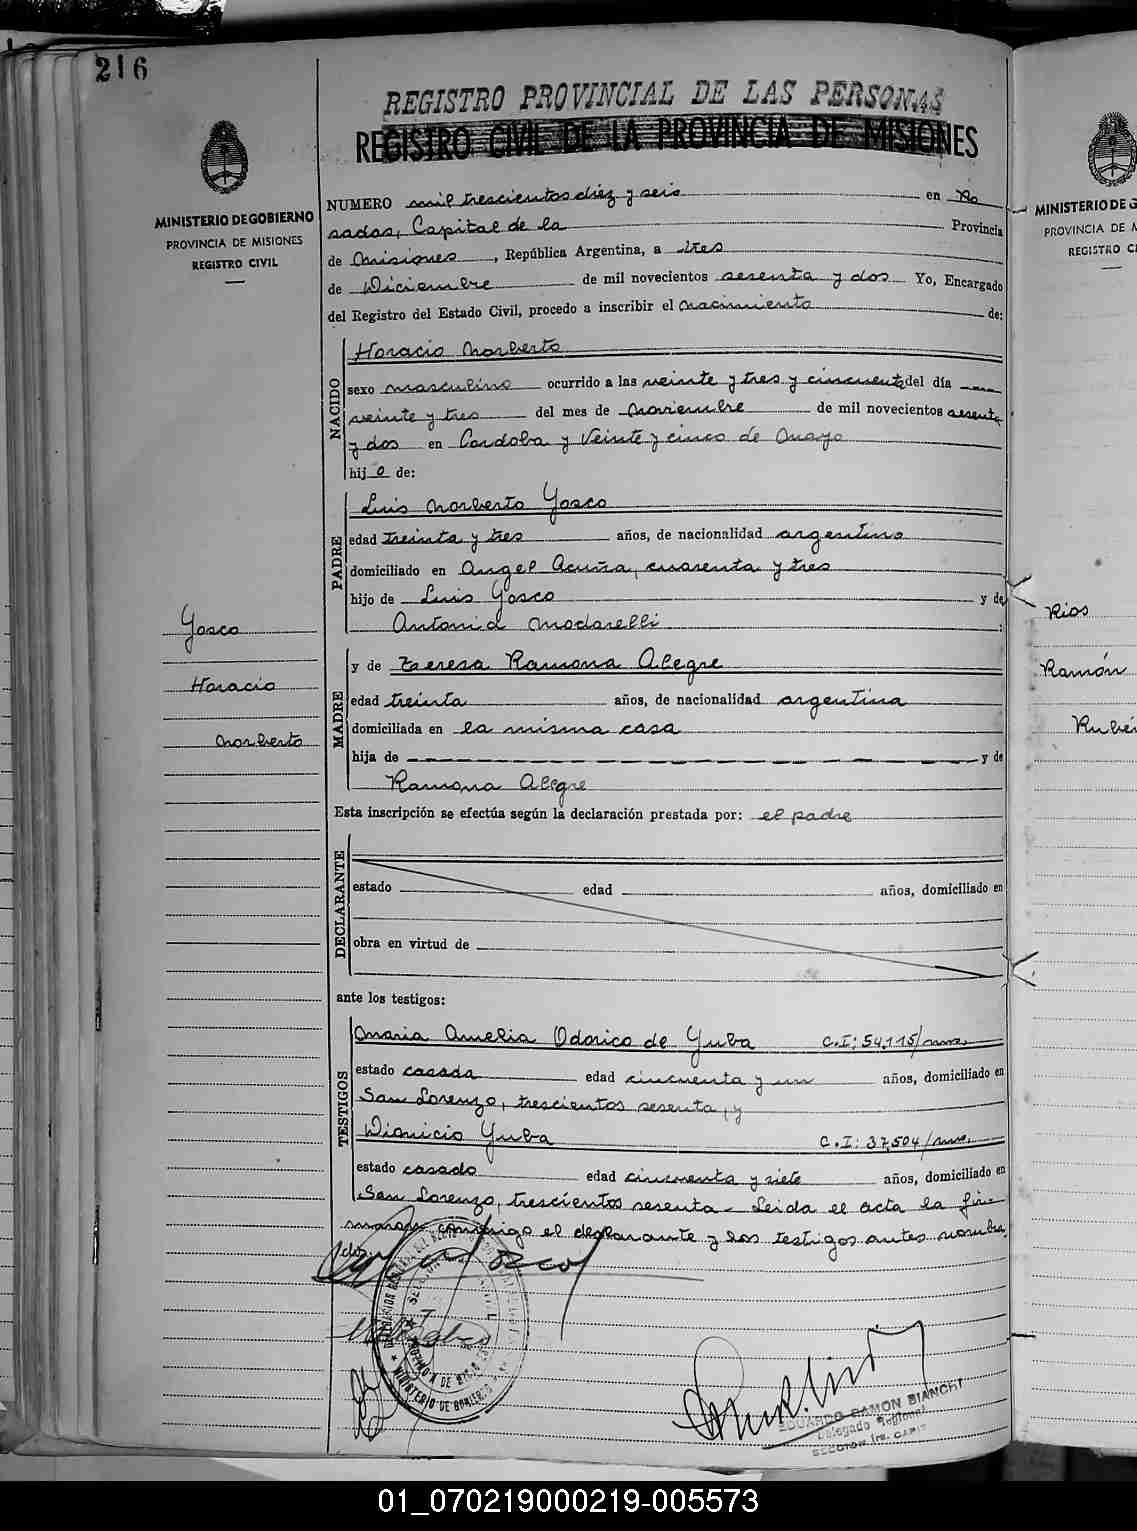 216
REGISTRO PROVINCIAL DE LAS PERSONAS
REGISTRO CIVIL DE LA PROVINCIA DE MISIONES
MINISTERIO DE GOBIERNO
PROVINCIA DE MISIONES
REGISTRO CIVIL
NUMERO mil trescientos diez y seis en Po
sadas, Capital de la Provincia
de Misiones, República Argentina, a tres
de Diciembre de mil novecientos sesenta y dos Yo, Encargado
del Registro del Estado Civil, procedo a inscribir el nacimiento de:
NACIDO
Horacio Norberto
sexo masculino ocurrido a las veinte y tres y cincuenta del día
veinte y tres del mes de noviembre de mil novecientos sesenta
y dos en Cordoba y Veinte y cinco de Mayo
hijo de:
PADRE
Luis Norberto Yosco
edad treinta y tres años, de nacionalidad argentino
domiciliado en Angel Acuña, cuarenta y tres
hijo de Luis Yosco y de
Antonia Modarelli :
Yosco
Horacio
Norberto
MADRE
y de Teresa Ramona Alegre
edad treinta años, de nacionalidad argentina
domiciliada en la misma casa
hija de y de
Ramona Alegre
Esta inscripción se efectúa según la declaración prestada por: el padre
DECLARANTE
estado edad años, domiciliado en
obra en virtud de
ante los testigos:
TESTIGOS
Maria Amelia Odorico de Yuba C.I: 54.115/mnes.
estado casada edad cincuenta y un años, domiciliado en
San Lorenzo, trescientos sesenta, y
Dionicio Yuba C.I: 37,504/mnes.
estado casado edad cincuenta y siete años, domiciliado en
San Lorenzo, trescientos sesenta - Leida el acta la fir-
maron conmigo el declarante y los testigos antes nombra
dos.
MINISTERIO DE GOBIERNO
EDUARDO RAMON BIANCHI
Delegado Regional
SECCION 1ra. CAPIT
MINISTERIO DE G
PROVINCIA DE M
REGISTRO CI
Rios
Ramón
Rubén
01_070219000219-005573